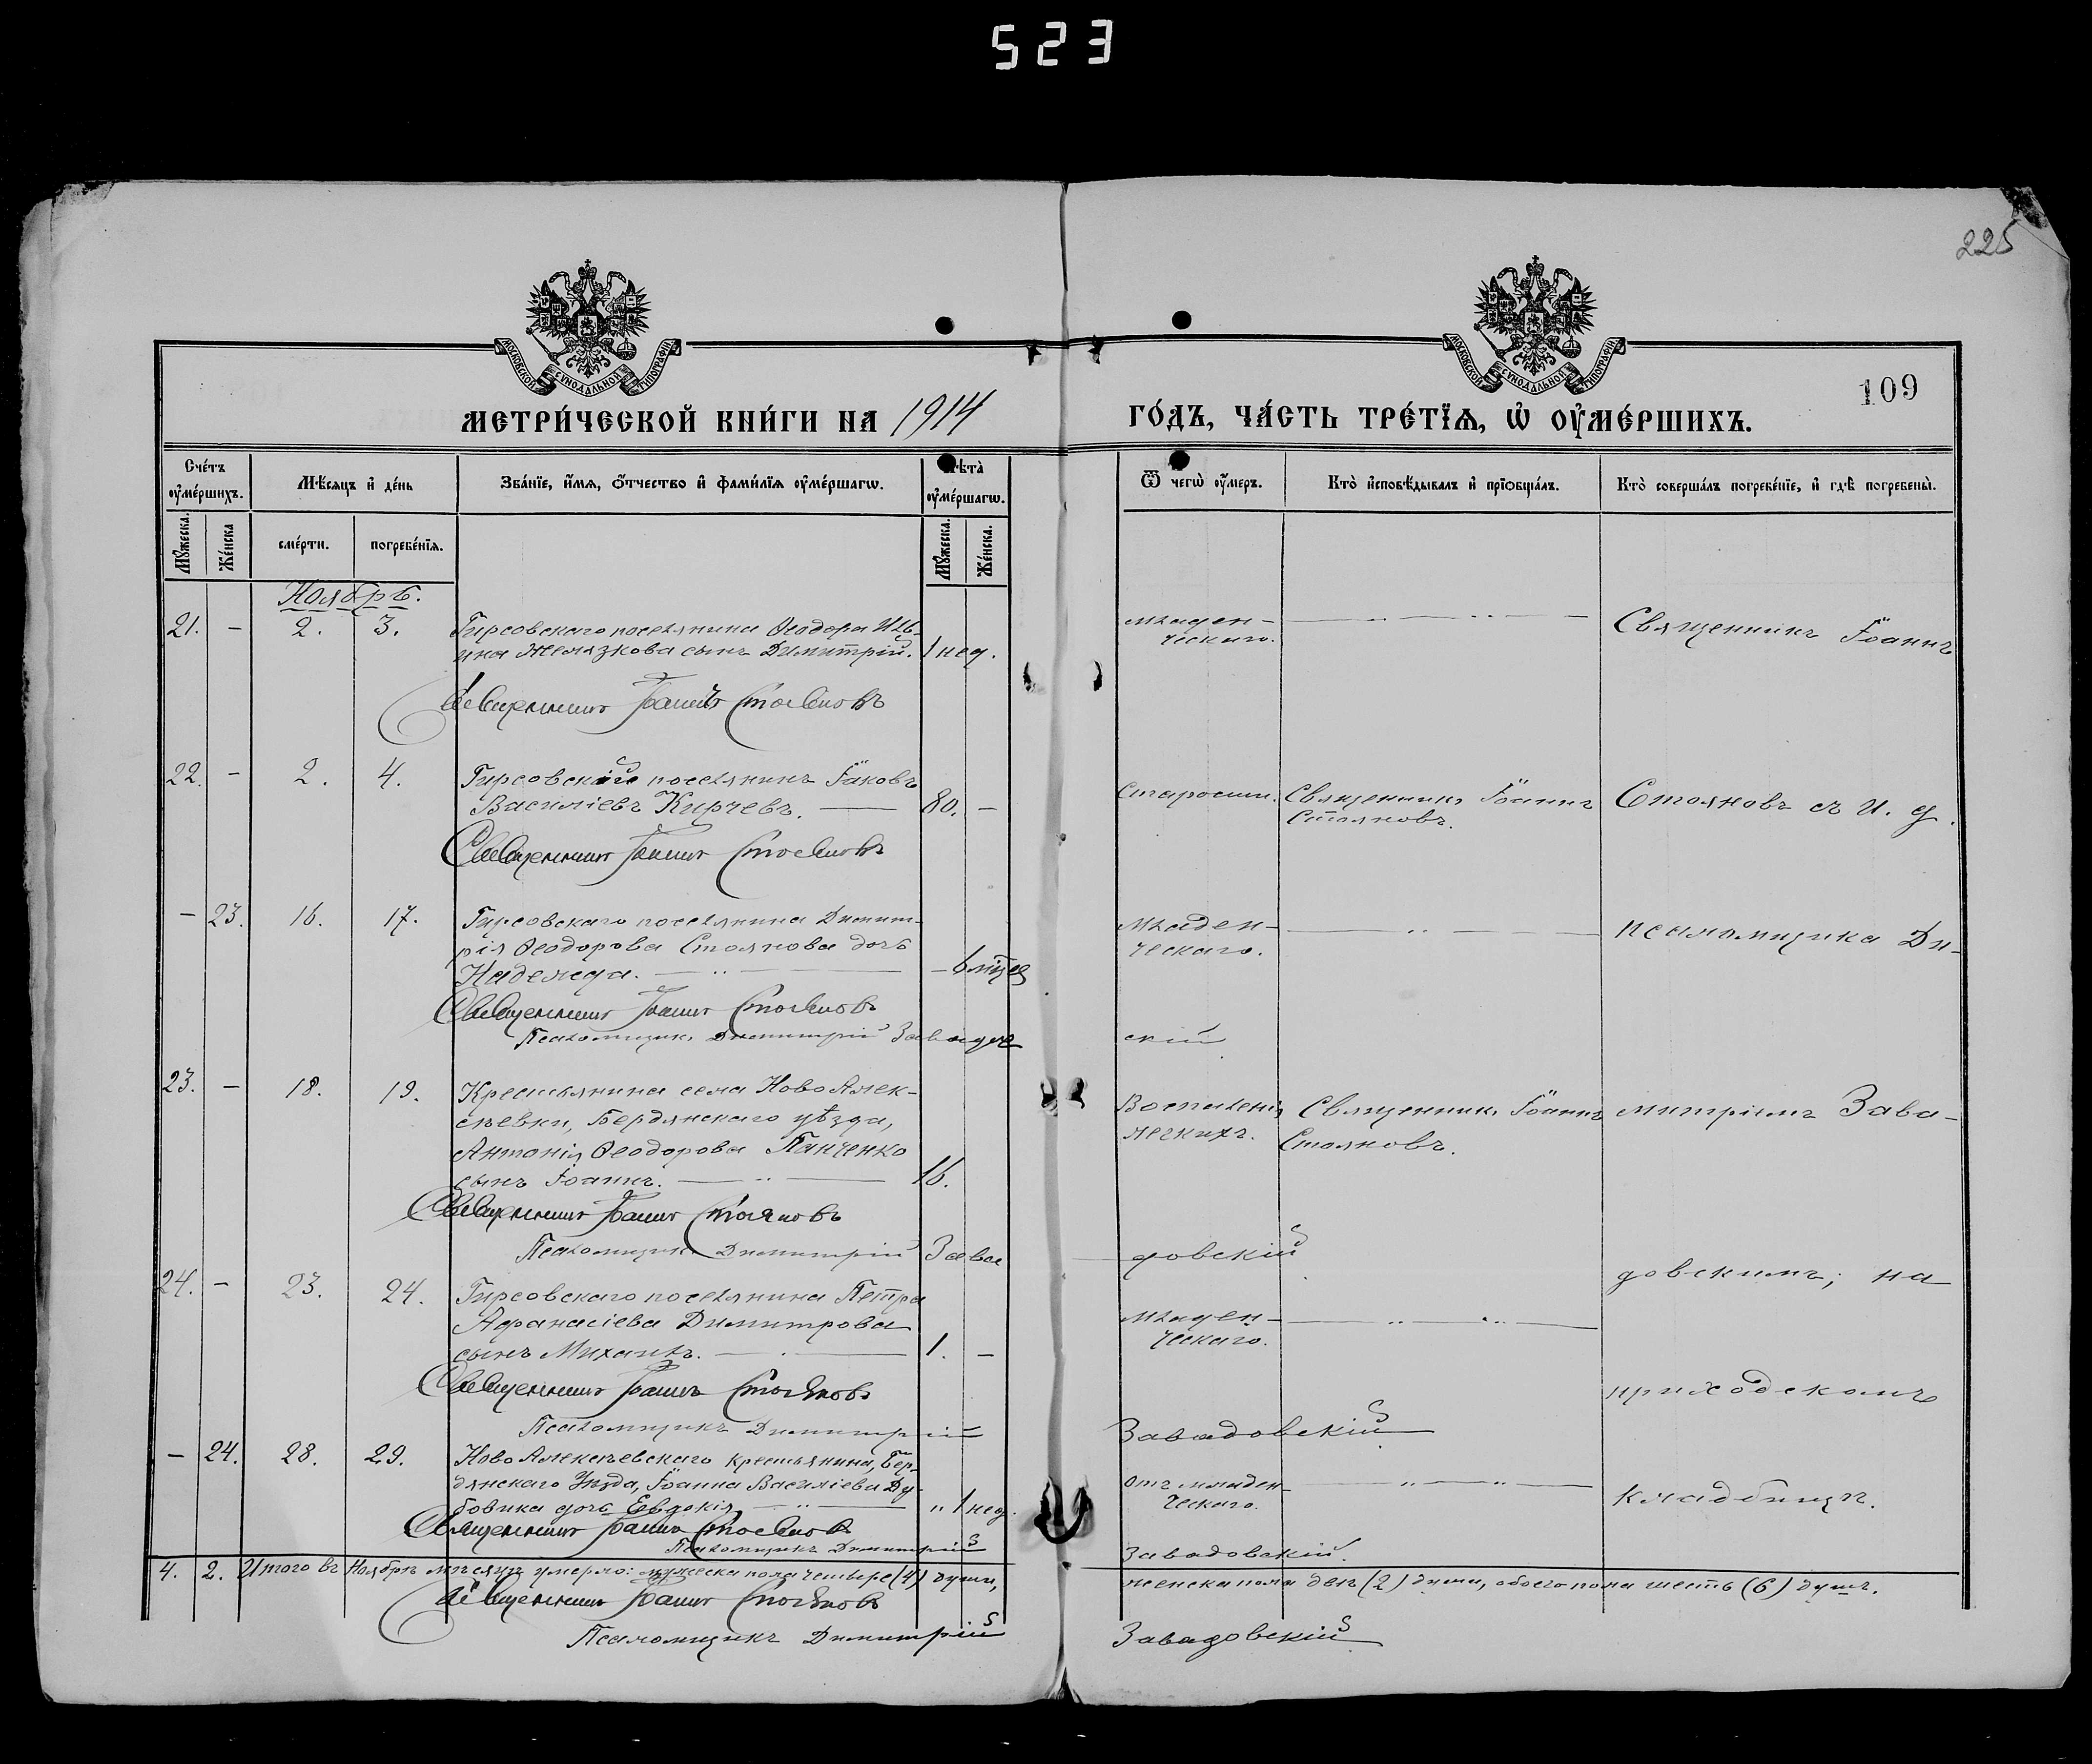 523
225
109
МОСКОВСКОЙ СѴНОДАЛЬНОЙ ТИПОГРАФІИ
МОСКОВСКОЙ СѴНОДАЛЬНОЙ ТИПОГРАФІИ
МЕТРИ́ЧЕСКОЙ КНИ́ГИ НА 1914
ГО́ДЪ, ЧА́СТЬ ТРЕ́ТЇѦ, Ѡ҆ ОУ҆МЕ́РШИХЪ.
Сче́тъ оу҆ме́ршихъ.
Мѣ́сяцъ и҆ де́нь
Зва́нїе, и҆́мѧ, ѻ҆́тчество и҆ фами́лїѧ оу҆ме́ршагѡ.
Лѣ́та̀ оу҆ме́ршагѡ.
Ѿ чегѡ̀ оу҆́меръ.
Кто̀ и҆сповѣ́дывалъ и҆ прїѡбща́лъ.
Кто̀ соверша́лъ погребе́нїе, и҆ гдѣ̀ погребены̀.
Мꙋ́жеска.
Же́нска
сме́рти.
погребе́нїѧ.
Мꙋ́жеска.
Же́нска.
Ноябрь.
21. – 2. 3. Гирсовскаго поселянина Ѳеодора Иль-
ина Желязкова сынъ Димитрій. 1 нед.
младен-
ческаго.
Священникъ Іоаннъ
Священникъ Іоаннъ Стояновъ
22. – 2. 4. Гирсовскій поселянинъ Іаковъ
Василіевъ Кирчевъ. 80. –
Старости. Священникъ Іоаннъ
Стояновъ.
Стояновъ съ И. д.
Священникъ Іоаннъ Стояновъ
– 23. 16. 17. Гирсовскаго поселянина Димит-
рія Ѳеодорова Стоянова дочь
Надежда. – 6 мѣсяц
младен-
ческаго.
псаломщика Ди-
Священникъ Іоаннъ Стояновъ
Псаломщикъ Димитрій Завадов
скій
23. – 18. 19. Крестьянина села Ново Алек-
сѣевки, Бердянскаго уѣзда,
Антонія Ѳеодорова Панченко
сынъ Іоаннъ. 16.
Воспаленія
легкихъ.
Священникъ Іоаннъ
Стояновъ.
митріемъ Зава-
Священникъ Іоаннъ Стояновъ
Псаломщикъ Димитрій Зава
довскій
24. – 23. 24. Гирсовскаго поселянина Петра
Афанасіева Димитрова
сынъ Михаилъ. 1. –
младен-
ческаго.
довскимъ; на
Священникъ Іоаннъ Стояновъ
приходскомъ
Псаломщикъ Димитрій
Завадовскій
– 24. 28. 29. Ново Алексѣевскаго крестьянина, Бер-
дянскаго Уѣзда, Іоанна Василіева Ду-
бовика дочь Евдокія " 1 нед.
отъ младен-
ческаго.
кладбищѣ.
Священникъ Іоаннъ Стояновъ
Псаломщикъ Димитрій
Завадовскій.
4. 2. Итого въ Ноябрѣ мѣсяцѣ умерло: мужеска пола четыре (4) души,
женска пола двѣ (2) души, обоего пола шесть (6) душъ.
Священникъ Іоаннъ Стояновъ
Псаломщикъ Димитрій
Завадовскій